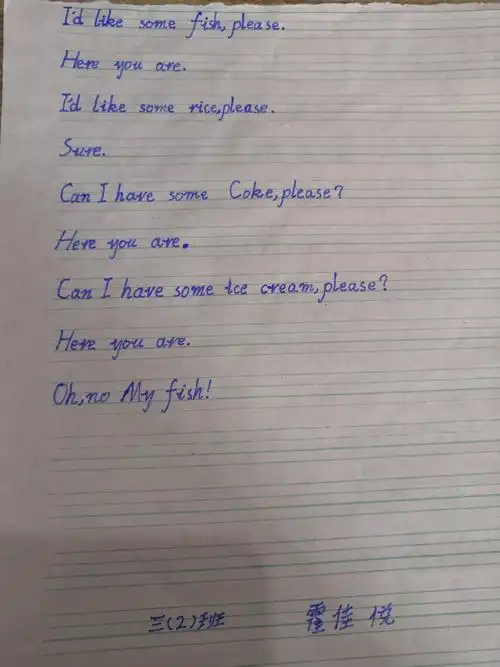 I'd like some fish, please.
Here you are.
I'd like some rice, please.
Sure.
Can I have some Coke, please?
Here you are.
Can I have some ice cream, please?
Here you are.
Oh, no My fish!
三(2)班 霍佳悦